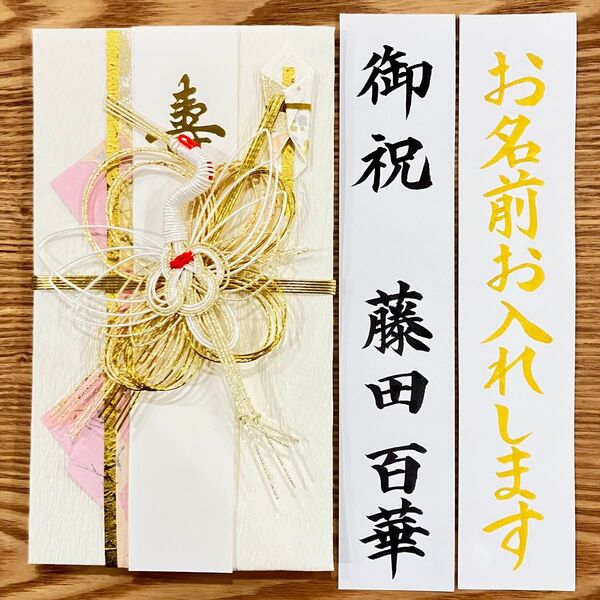 お名前お入れします
御祝 藤田百華
寿